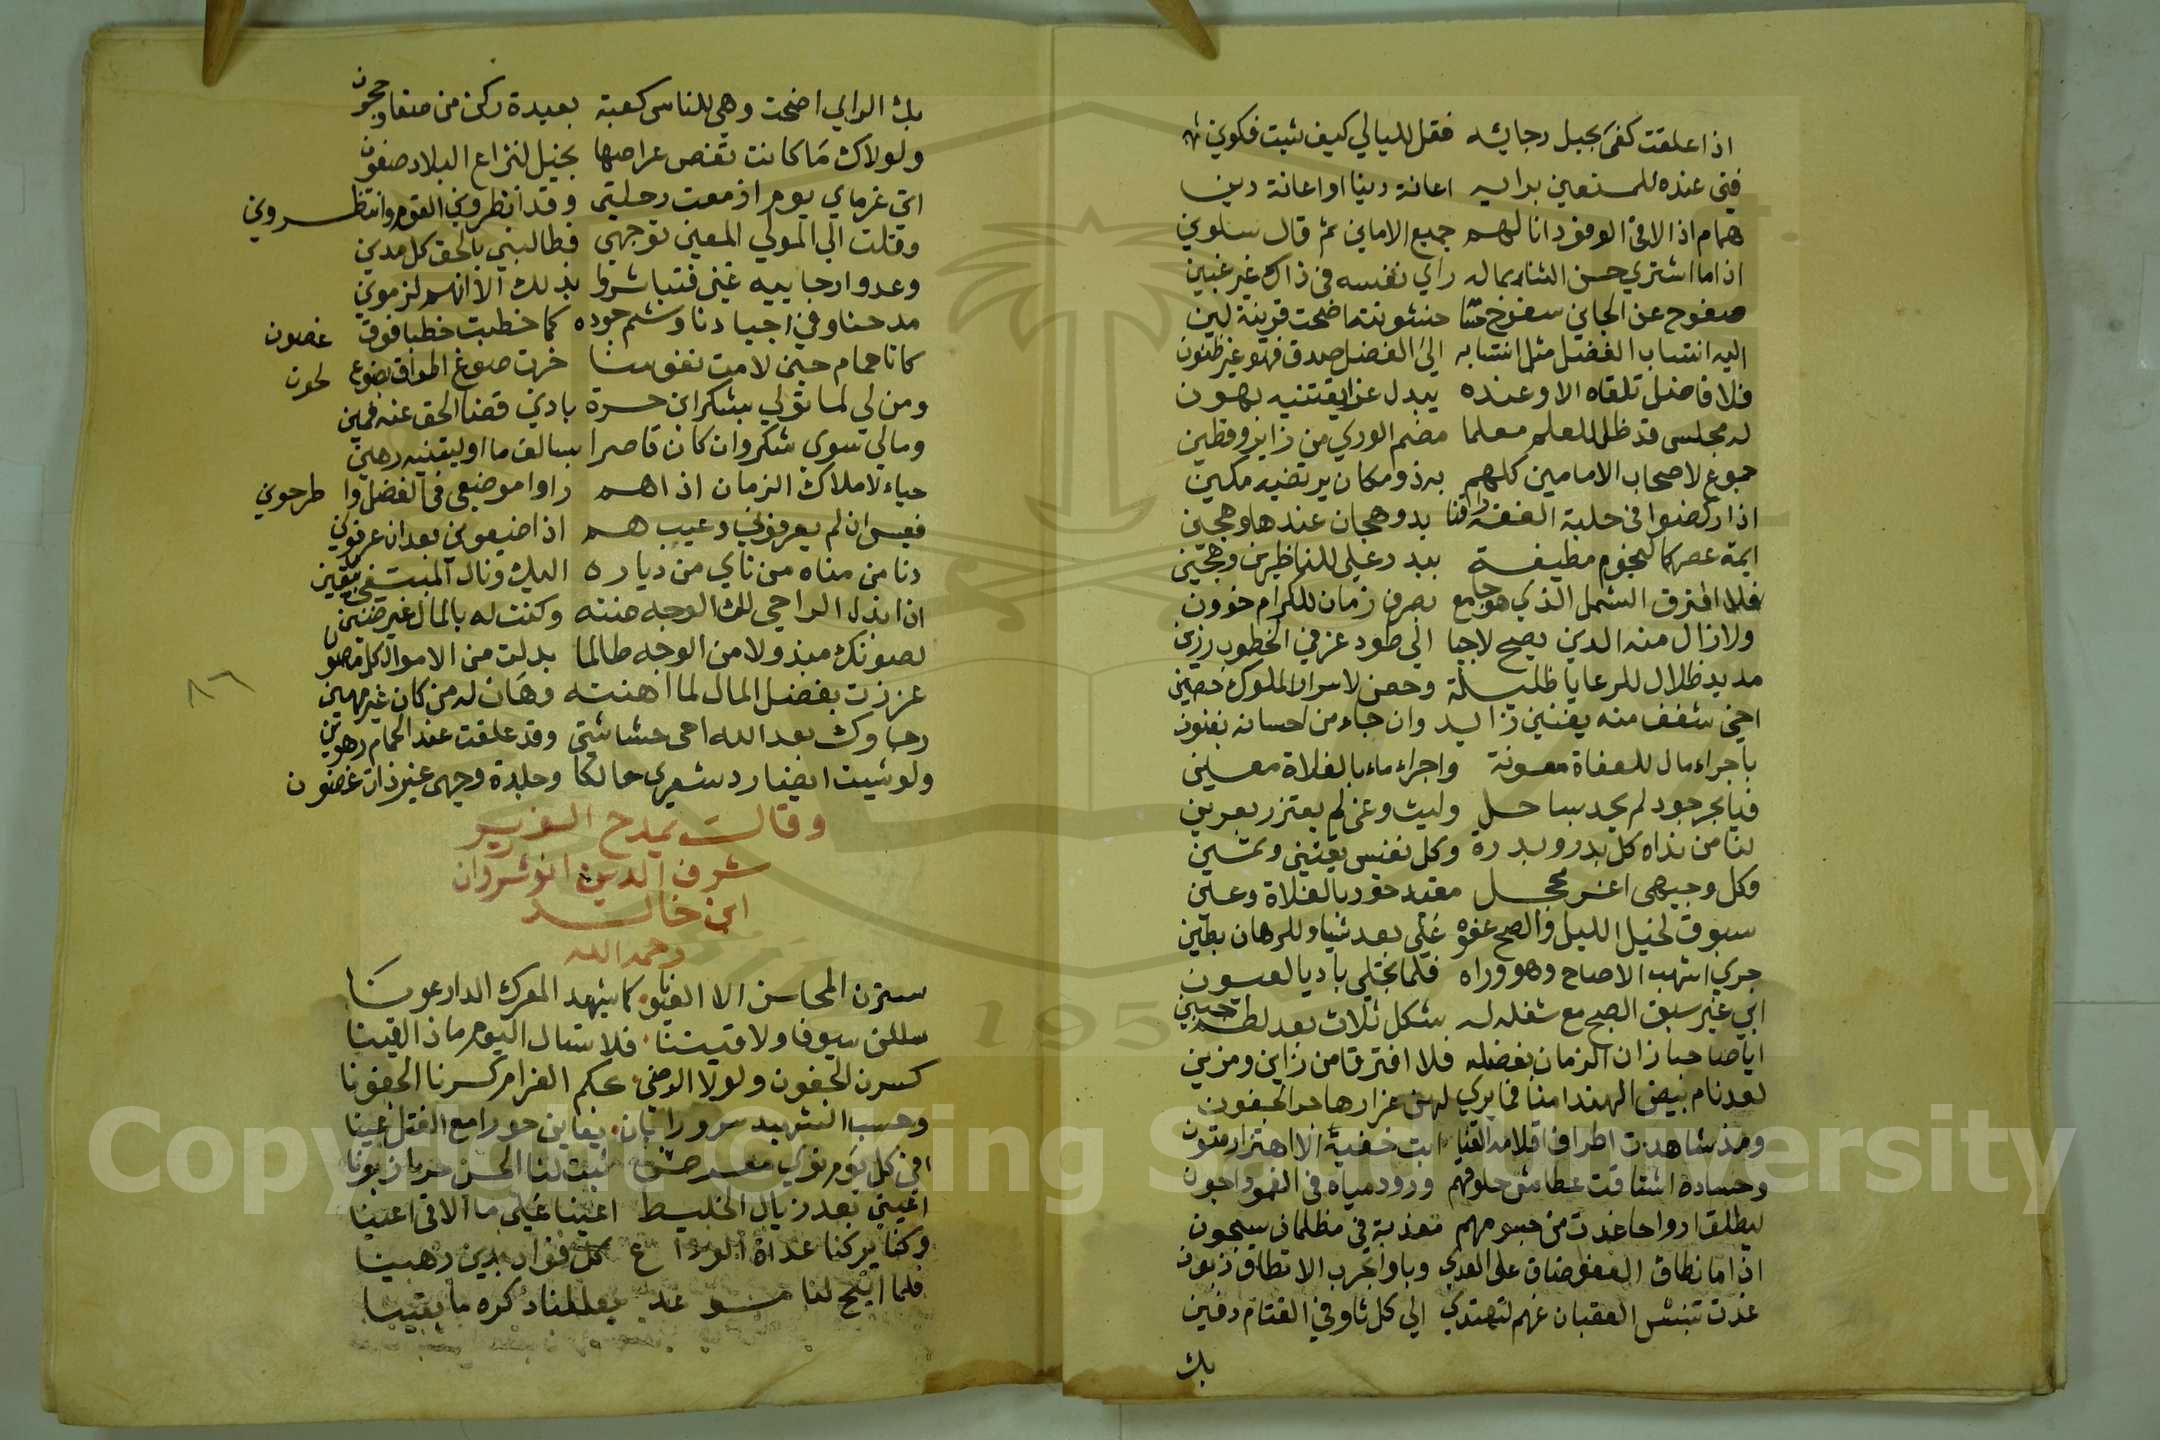 اذا علقت كفى بحبل رجائه فقل لليالي كيف شيت فكوني
فتى عنده للمستعين برايه اعانة دنيا او اعانة دين
همام اذا لاقى الوفود انالهم جميع الاماني ثم قال سلوني
اذا ما اشتري حسن الثناء بماله راي نفسه في ذاك غير غبين
صفوح عن الجاني خشونته اضحت قرينة لين
اليه انتساب الفضل مثل انتسابه الى الفضل صدق فهو غير ظنون
فلا فاضل تلقاه الا وعنده يبدل يقتنيه بهون
له مجلس قد ظل للعلم معلما مضم الوري من زاير وقطين
جموع لاصحاب الامامين كلهم به ذو مكان يرتضيه مكين
اذا ركضوا في حلبة الفقه بدو هجان عندها وهجين
ايمة عصر كالنجوم مطيفة ببدر علي للناظرين
فلا افترق الشمل الذي هو جامع بصرف زمان للكرام خوون
ولا زال منه الدين يصبح لاجيا الي طود عز في الخطوب رزين
مديد ظلال للرعايا ظليلة وحصن لاسرار الملوك حصين
اخي شغف منه يفنين زايد وان جاء من احسانه بفنون
باجراء مال للعفاة معونة واجراء ماء بالفلاة معين
فيا بحر جود لم يحد بساحل وليث وعى لم يعتزر بعرين
لنا من نداه كل بدر وبدرة وكل نفيس يقتني وثمين
وكل وجيهي اغر محجل مقيد حقود بالفلاة وعين
سبوق لخيل الليل والصبح عفوه على بعد شياو للرهان بطين
جري اشهب الاصباح وهو وراه فلما تجلي باديا لعيون
ابي غير سبق الصبح مع شغله له بشكل ثلاث بعد لطم جبين
ايا صاحبا زان الزمان بفضله فلا افترقا من زاين ومزين
لعد نام بيض الهند امنا فما يري لهن غرارها حد الجفون
ومذ شاهدت اطراف اقلامه القنا ابت خفية الا اهتزاز متون
وحساده اشتاقت عطاش حلوقهم ورود مياه في الغمود اجون
ليطلق ارواحا غدت من جسومهم معذبة في مظلمات سجون
اذا ما نطاق العفو ضاق على العدي
غدت تنبش العقبان عنهم لتهتدي الي كل ثاو في القتام دفين
بك
بك الراي اضحت وهي للناس كعبة بعيدة ركن من حجون
ولولاك ما كانت تغص عراصها بخيل لنزاع البلاد صفون
اتى غرماي يوم ازمعت رحلتي وقد انظروني القوم وانتظروني
وقلت الي المولي المعين توجهي فطالبني بالحق كل مدين
وعدوا رجاييه غنى فتباشروا بذلك الا انهم لزموني
مدحنا وفي اجيادنا وشم جوده كما خطبت خطبا فوق غصون
كانا حمام حين لامت نفوسنا خرت صوغ اطواق بضوع لحون
ومن لي لما تولي بشكر ابن حرة بادني قضا الحق عنه قمين
ومالي سوى شكر وان كان قاصرا بسالف ما اوليتنيه رهين
حياء لاملاك الزمان اذا هم راوا موضعي في الفضل واطرحوني
فعيبي ان لم يعرفوني وعيبهم اذا ضيعوني بعد ان عرفوني
دنا من مناه من ناي من دياره اليك ونال المبتغي بيقين
اذا بذل الراجي لك الوجه صنته وكنت له بالمال غير ضنين
لصونك مبذولا من الوجه طالما بذلت من الاموال كل مصون
عززت بفضل المال لما اهنته وهان له من كان غير مهين
رجاوك بعد الله احي حشاشتي وقد علقت عند الحمام رهوني
ولو شيت ايضا رد شعري حالكا وجلدة وجهي غير ذات غضون
وقال يمدح الوزير
شرف الدين انوشروان
ابن خالد
رحمه الله
سترن المحاسن الا العيونا كما يشهد المعرك الدارعونا
سللن سيوفا ولاقيننا فلا تسال اليوم ماذا لقينا
كسرن الجفون ولولا الرضي بحكم الغرام كسرنا الجفونا
وحسب الشهيد سرورا بان يعاين حورا مع القتل عينا
افي كل يوم نوي ثبت لنا الحرب حربا زبونا
اعيني بعد زيال الخليط اعينا على ما الاقي اعينا
وكنا تركنا غداة الوداع كل فؤاد بدين رهينا
فلما اتيح لنا موعد يعللنا ذكره ما بقينا
٨٦
Copyright © King Saud University
1957